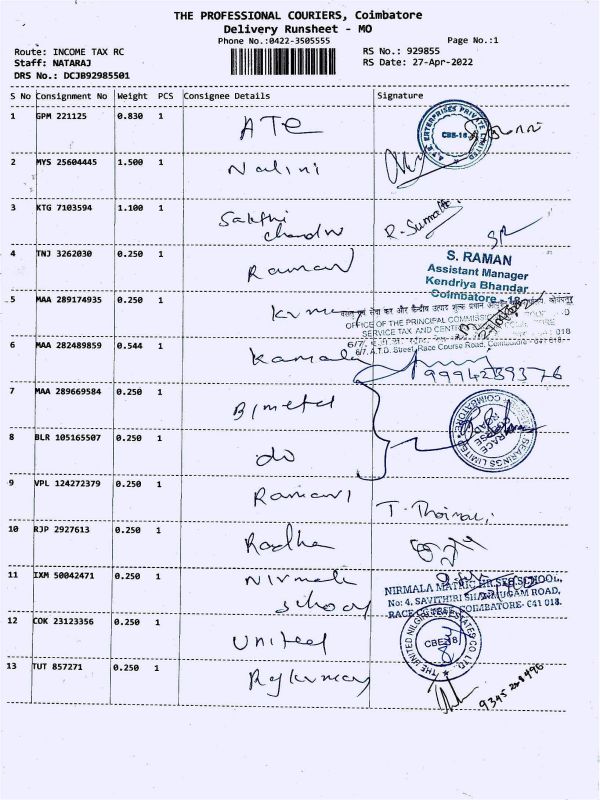 THE PROFESSIONAL COURIERS, Coimbatore
Delivery Runsheet - MO
Phone No.:0422-3505555 Page No.:1
Route: INCOME TAX RC RS No.: 929855
Staff: NATARAJ RS Date: 27-Apr-2022
DRS No.: DCJB92985501
S No Consignment No Weight PCS Consignee Details Signature
1 GPM 221125 0.830 1 ATE
A.T.E. ENTERPRISES PRIVATE LIMITED
CBE-18
2 MYS 25604445 1.500 1 Nalini
3 KTG 7103594 1.100 1 Sakthi
4 TNJ 3262030 0.250 1 Raman
S. RAMAN
Assistant Manager
Kendriya Bhandar
Coimbatore - 18
5 MAA 289174935 0.250 1 Kumar
OFFICE OF THE PRINCIPAL
SERVICE TAX AND
6/7, A.T.D. Street, Race Course Road, Coimbatore - 641 018
6 MAA 282489859 0.544 1 Kamala
9994239376
7 MAA 289669584 0.250 1 Bimetal
BEARINGS LIMITED
RACE COURSE ROAD
COIMBATORE
8 BLR 105165507 0.250 1 do
9 VPL 124272379 0.250 1 Ramani
10 RJP 2927613 0.250 1 Radha
11 IXM 50042471 0.250 1 Nirmala
School
NIRMALA MATRIC HR.SEC.SCHOOL,
No: 4, SAVITHIRI SHANMUGAM ROAD,
RACE COURSE, COIMBATORE- 641 018.
12 COK 23123356 0.250 1 United
THE UNITED NILGIRI TEA ESTATES CO LTD.
CBE-18
13 TUT 857271 0.250 1 Rajkumar